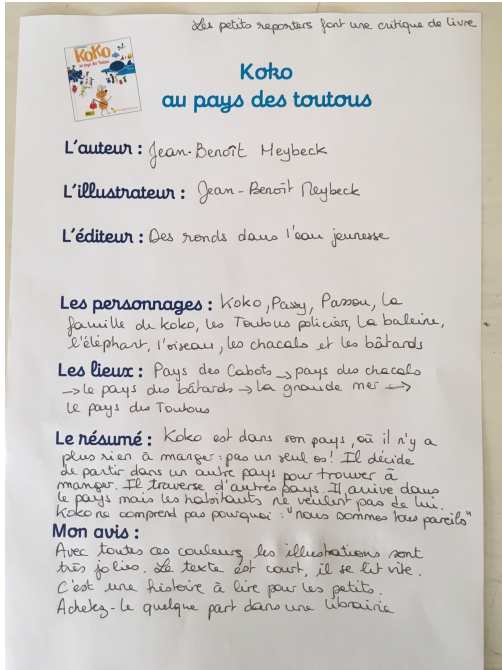 Les petits reporters font une critique de livre
KOKO
au pays des Toutous
Koko
au pays des toutous
L'auteur : Jean-Benoît Meybeck
L'illustrateur : Jean-Benoît Meybeck
L'éditeur : Des ronds dans l'eau jeunesse
Les personnages : Koko, Passy, Passou, La
famille de koko, les Toutous policiers, La baleine,
l'éléphant, l'oiseau, les chacals et les bâtards
Les lieux : Pays des Cabots → pays des chacals
→ le pays des bâtards → la grande mer →
le pays des Toutous
Le résumé : Koko est dans son pays, où il n'y a
plus rien à manger : pas un seul os! Il décide
de partir dans un autre pays pour trouver à
manger. Il traverse d'autres pays. Il arrive dans
le pays mais les habitants ne veulent pas de lui.
Koko ne comprend pas pourquoi : "nous sommes tous pareils"
Mon avis :
Avec toutes ces couleurs, les illustrations sont
très jolies. Le texte est court, il se lit vite.
C'est une histoire à lire pour les petits.
Achetez-le quelque part dans une librairie